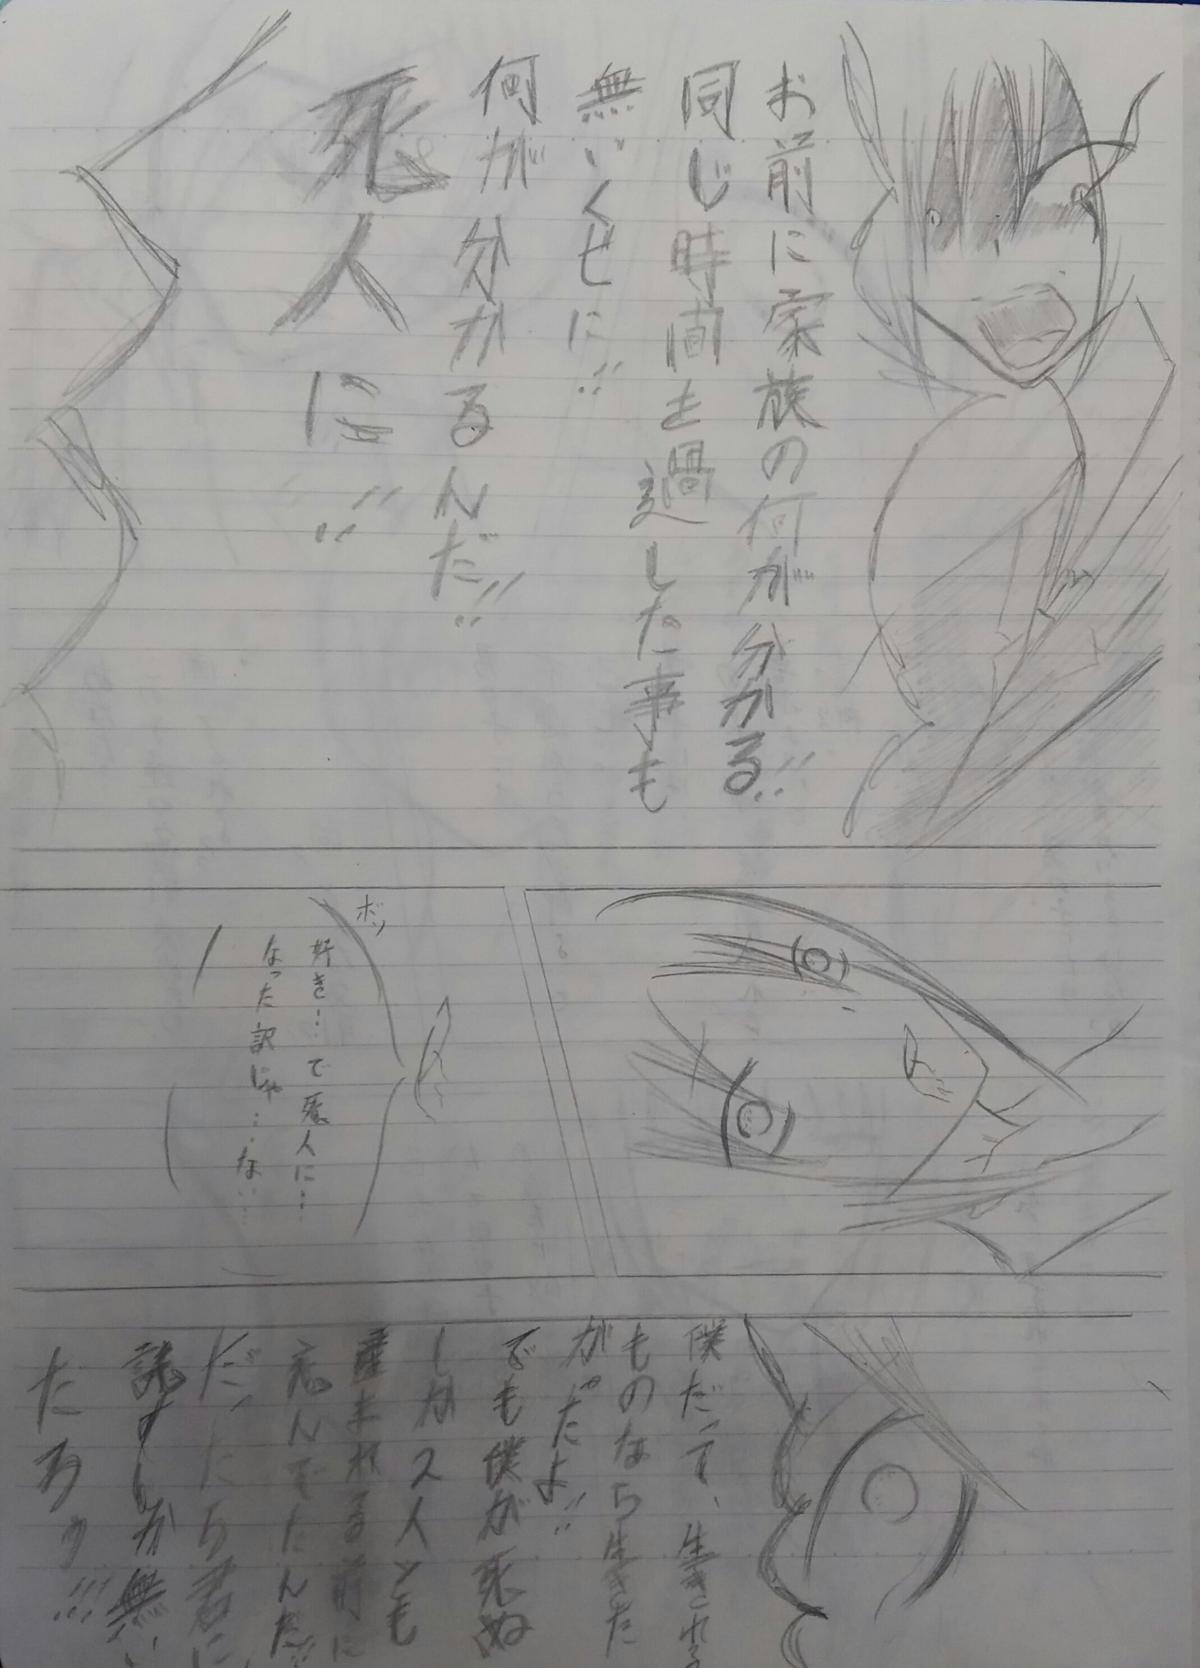 お前に家族の何が分かる!!
同じ時間を過した事も
無いくせに!!
何が分かるんだ!!
死人に!!
ボソ
好き…で死人に…
なった訳じゃ…な…
僕だって、生きれる
ものなら生きた
がったよ!!
でも僕が死ぬ
しか
産まれる前に
死んでたんだ!!
だったら君に
託すしか無い
だろう!!!